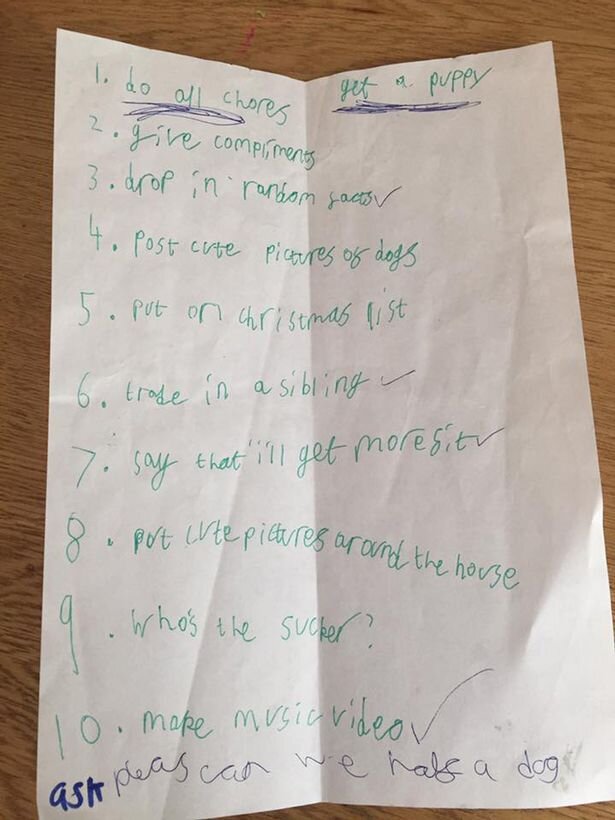 1. do all chores get a puppy
2. give compliments
3. drop in random facts ✓
4. post cute pictures of dogs
5. put on christmas list
6. trade in a sibling ✓
7. say that i'll get more fit ✓
8. put cute pictures around the house
9. Who's the sucker?
10. make music video ✓
ask pleas can we habe a dog